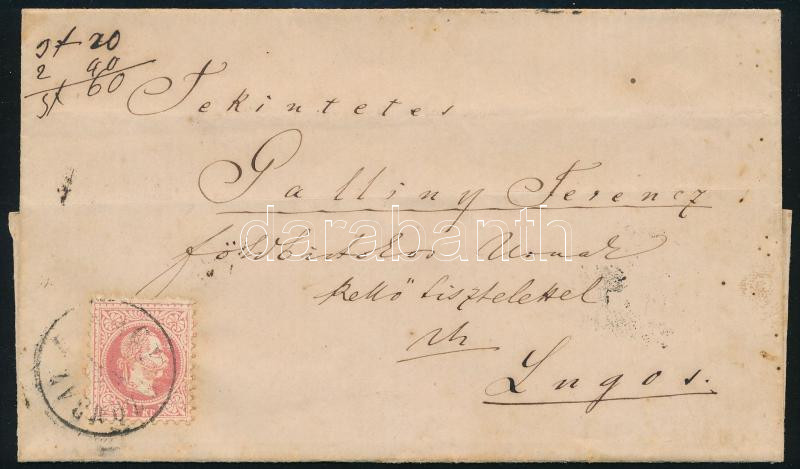 3f 20
2 40
5f 60
Tekintetes
Galliny Ferencz
földbirtokos Urnak
kellő tisztelettel
Lugos.
darabanth
5 KR